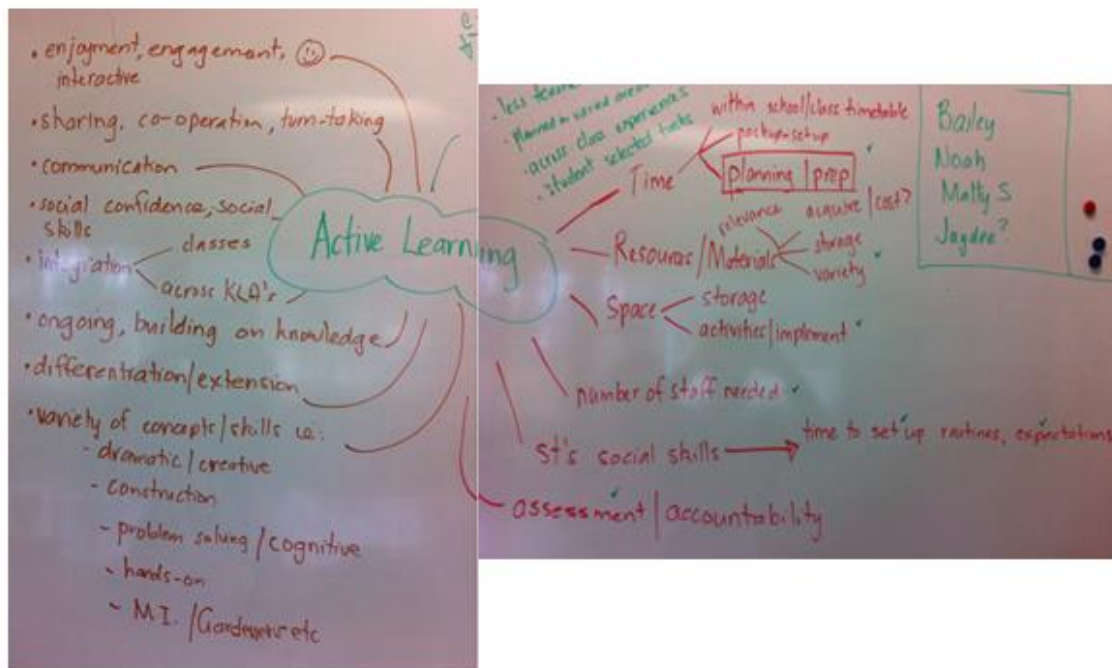 • enjoyment, engagement,
interactive
• sharing, co-operation, turn-taking
• communication
• social confidence, social
skills
• integration
classes
across KLA's
• ongoing, building on knowledge
• differentration/extension
• variety of concepts/skills i.e:
- dramatic/creative
- construction
- problem solving/cognitive
- hands-on
- M.I./Gardeners etc
Active Learning
• less
• planned in varied
• across class experiences
• student selected tasks
Time
within school/class timetable
packup-setup
planning | prep
Resources/Materials
relevance
acquire/cost?
storage
variety
Space
storage
activities/implement
number of staff needed
st's social skills
time to set up routines, expectations
assessment/accountability
Bailey
Noah
Matty S
Jaydne?